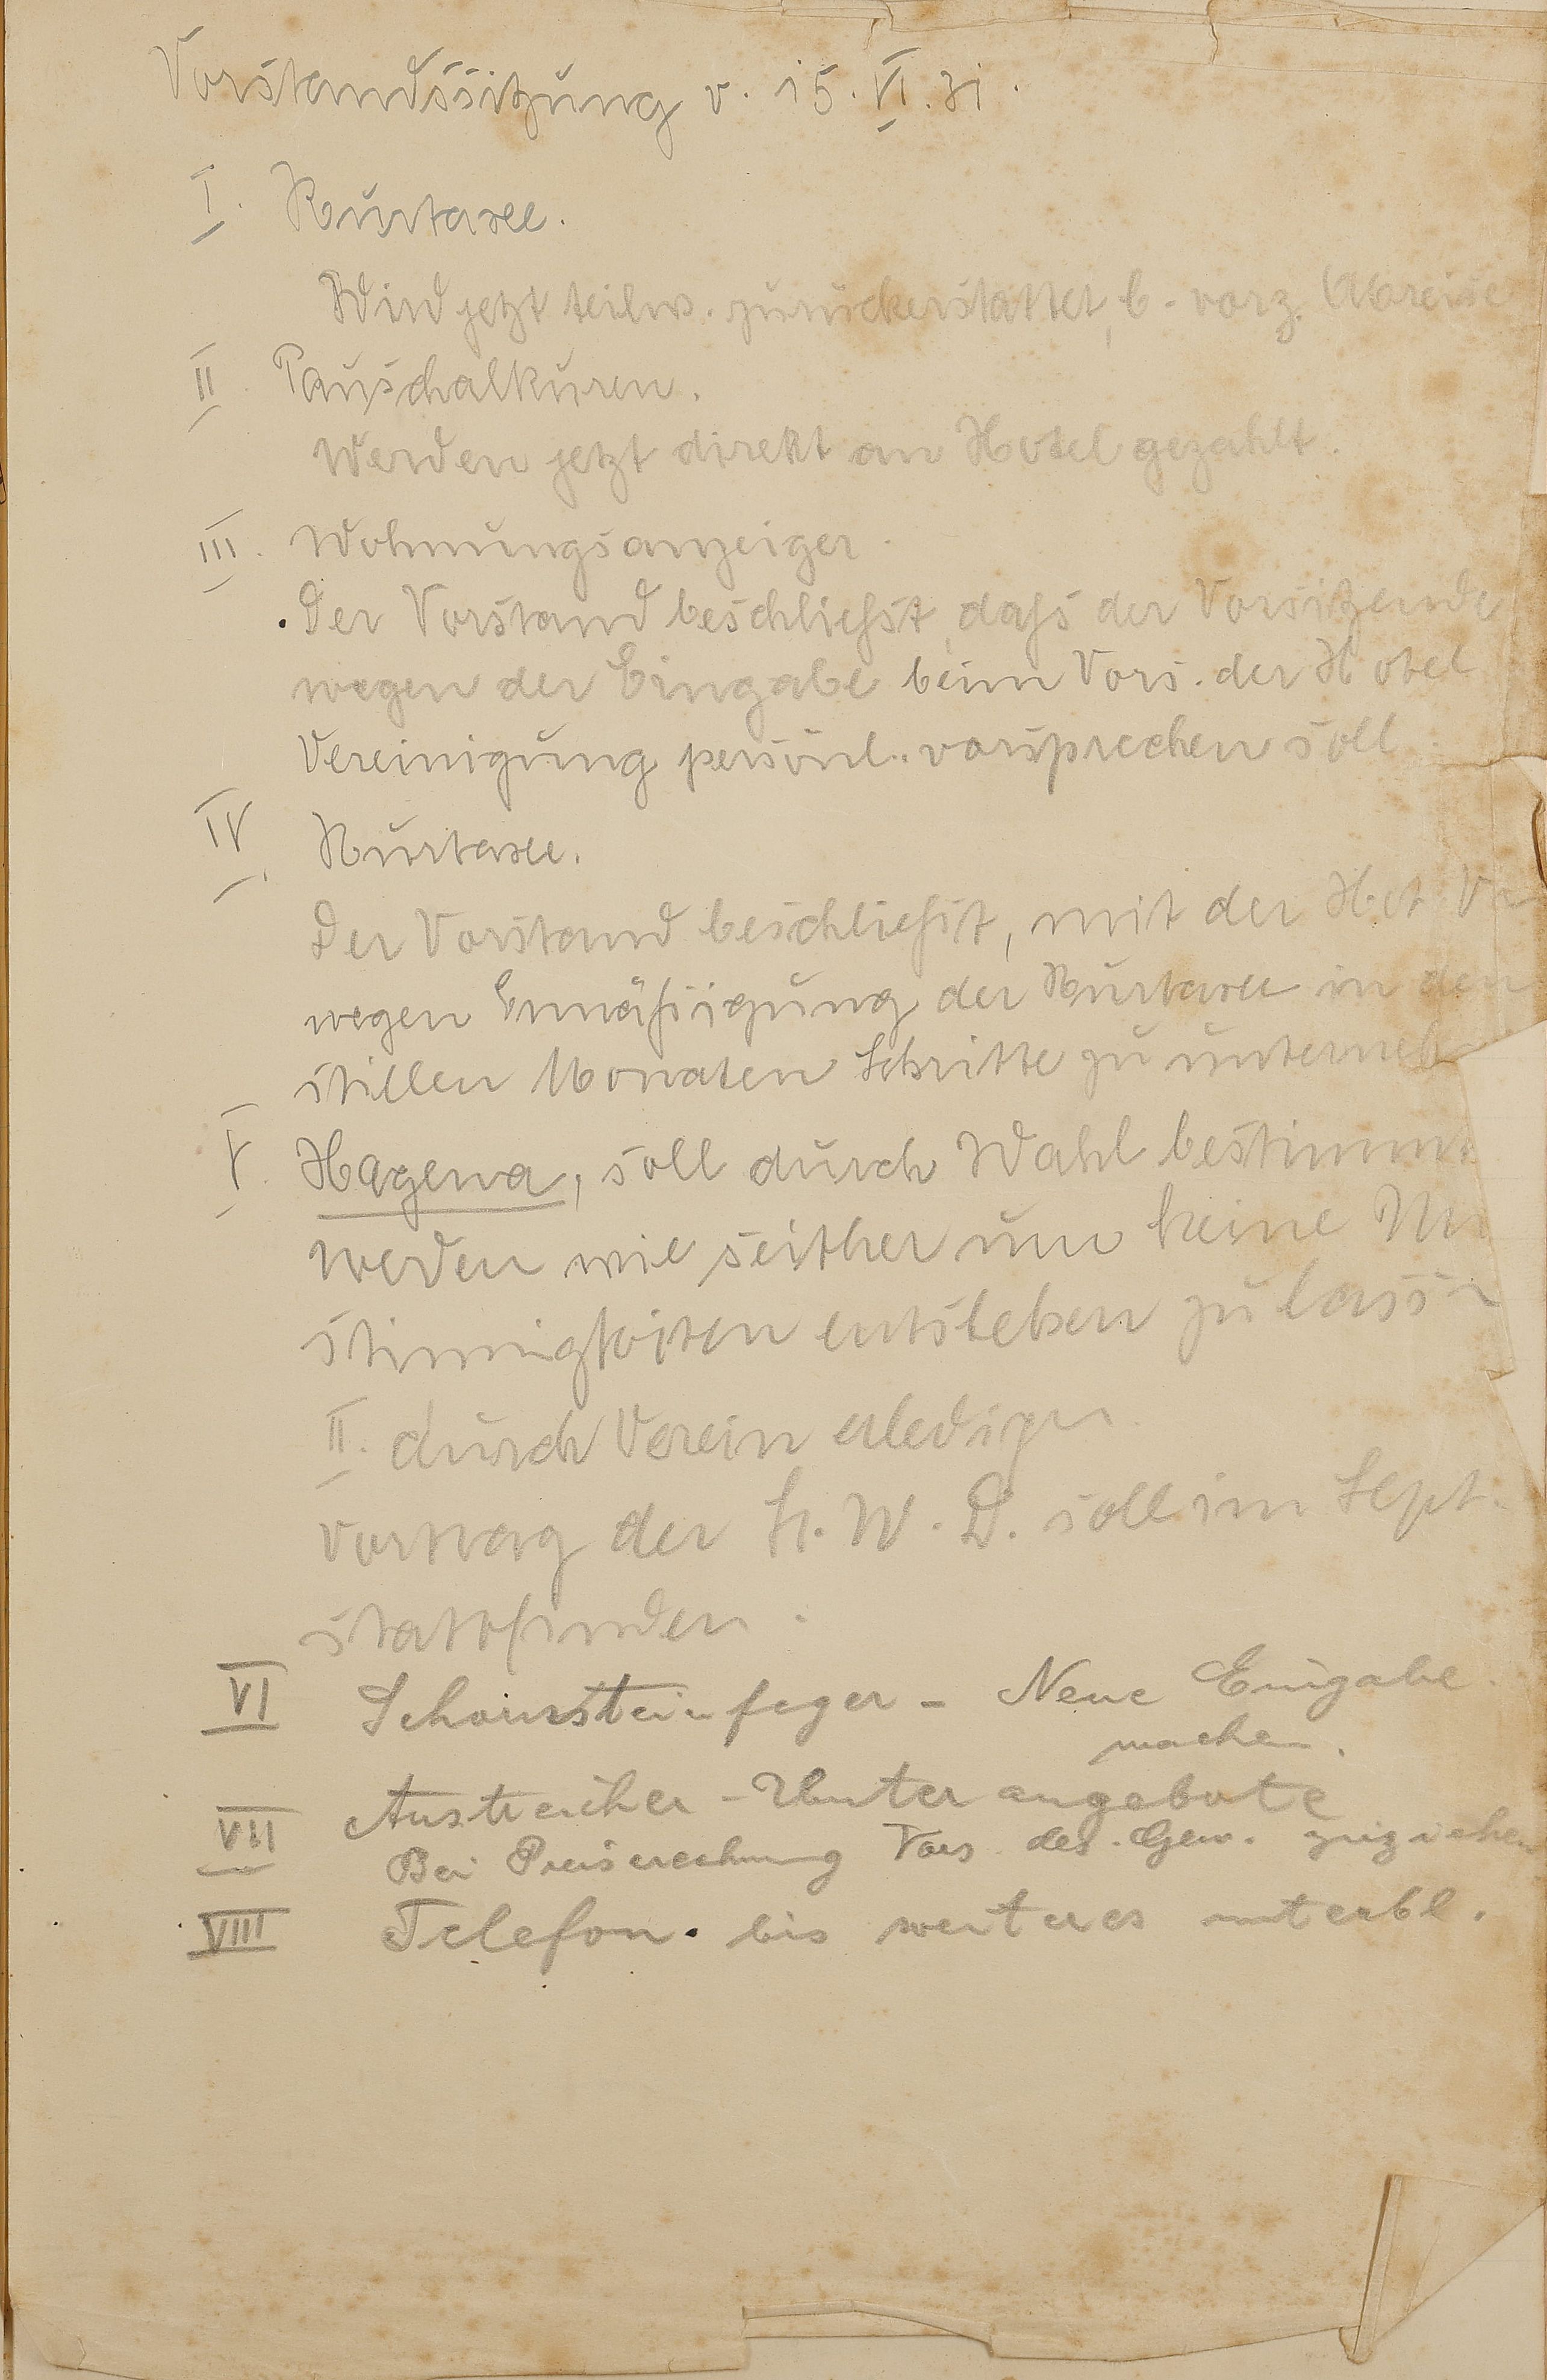 Vorstandssitzung v. 15. VI. 31.
I. Kurtaxe.
Wird jetzt teilw. zurückerstattet, b. vorz. Abreise
II Pauschalkuren.
Werden jetzt direkt an Hotel gezahlt.
III. Wohnungsanzeiger.
Der Vorstand beschliesst, dass der Vorsitzende
wegen der Eingabe beim Vors. der Hotel
Vereinigung persönl. vorsprechen soll
IV. Kurtaxe.
Der Vorstand beschliesst, mit der Hot. V
wegen Ermässigung der Kurtaxe in den
stillen Monaten Schritte zu unterneh
V. Hagena, soll durch Wahl bestimmt
werden wie seither um keine Un
stimmigkeiten entstehen zu lassen
II. durch Verein erledigen
Vortrag der H. W. D. soll im Sept.
stattfinden.
VI Schornsteinfeger - Neue Eingabe
machen.
VII Anstreicher - Unterangebote
Bei Preiserechnung Vors. des. Gew. zuziehen
VIII Telefon. bis weiteres unterbl.